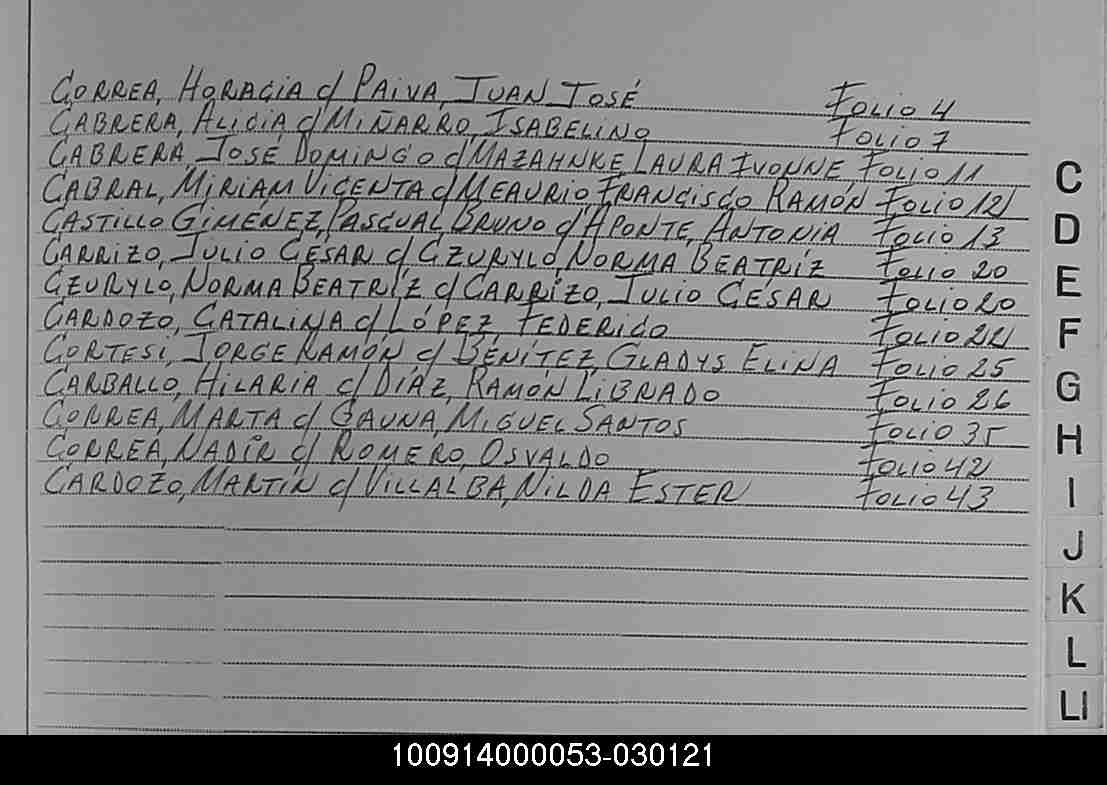 CORREA, HORACIA c/ PAIVA, JUAN JOSÉ FOLIO 4
CABRERA, ALICIA c/ MIÑARRO, ISABELINO FOLIO 7
CABRERA, JOSÉ DOMINGO c/ MAZAHNKE, LAURA IVONNE FOLIO 11
CABRAL, MIRIAM VICENTA c/ MEAURIO, FRANCISCO RAMÓN FOLIO 12
CASTILLO GIMÉNEZ, PASCUAL BRUNO c/ APONTE, ANTONIA FOLIO 13
CARRIZO, JULIO CÉSAR c/ CZURYLO, NORMA BEATRÍZ FOLIO 20
CZURYLO, NORMA BEATRÍZ c/ CARRIZO, JULIO CÉSAR FOLIO 20
CARDOZO, CATALINA c/ LÓPEZ, FEDERICO FOLIO 22
CORTESI, JORGE RAMÓN c/ BENÍTEZ, GLADYS ELINA FOLIO 25
CARBALLO, HILARIA c/ DÍAZ, RAMÓN LIBRADO FOLIO 26
CORREA, MARTA c/ GAUNA, MIGUEL SANTOS FOLIO 35
CORREA, NADIR c/ ROMERO, OSVALDO FOLIO 42
CARDOZO, MARTÍN c/ VILLALBA, NILDA ESTER FOLIO 43
C
D
E
F
G
H
I
J
K
L
Ll
100914000053-030121